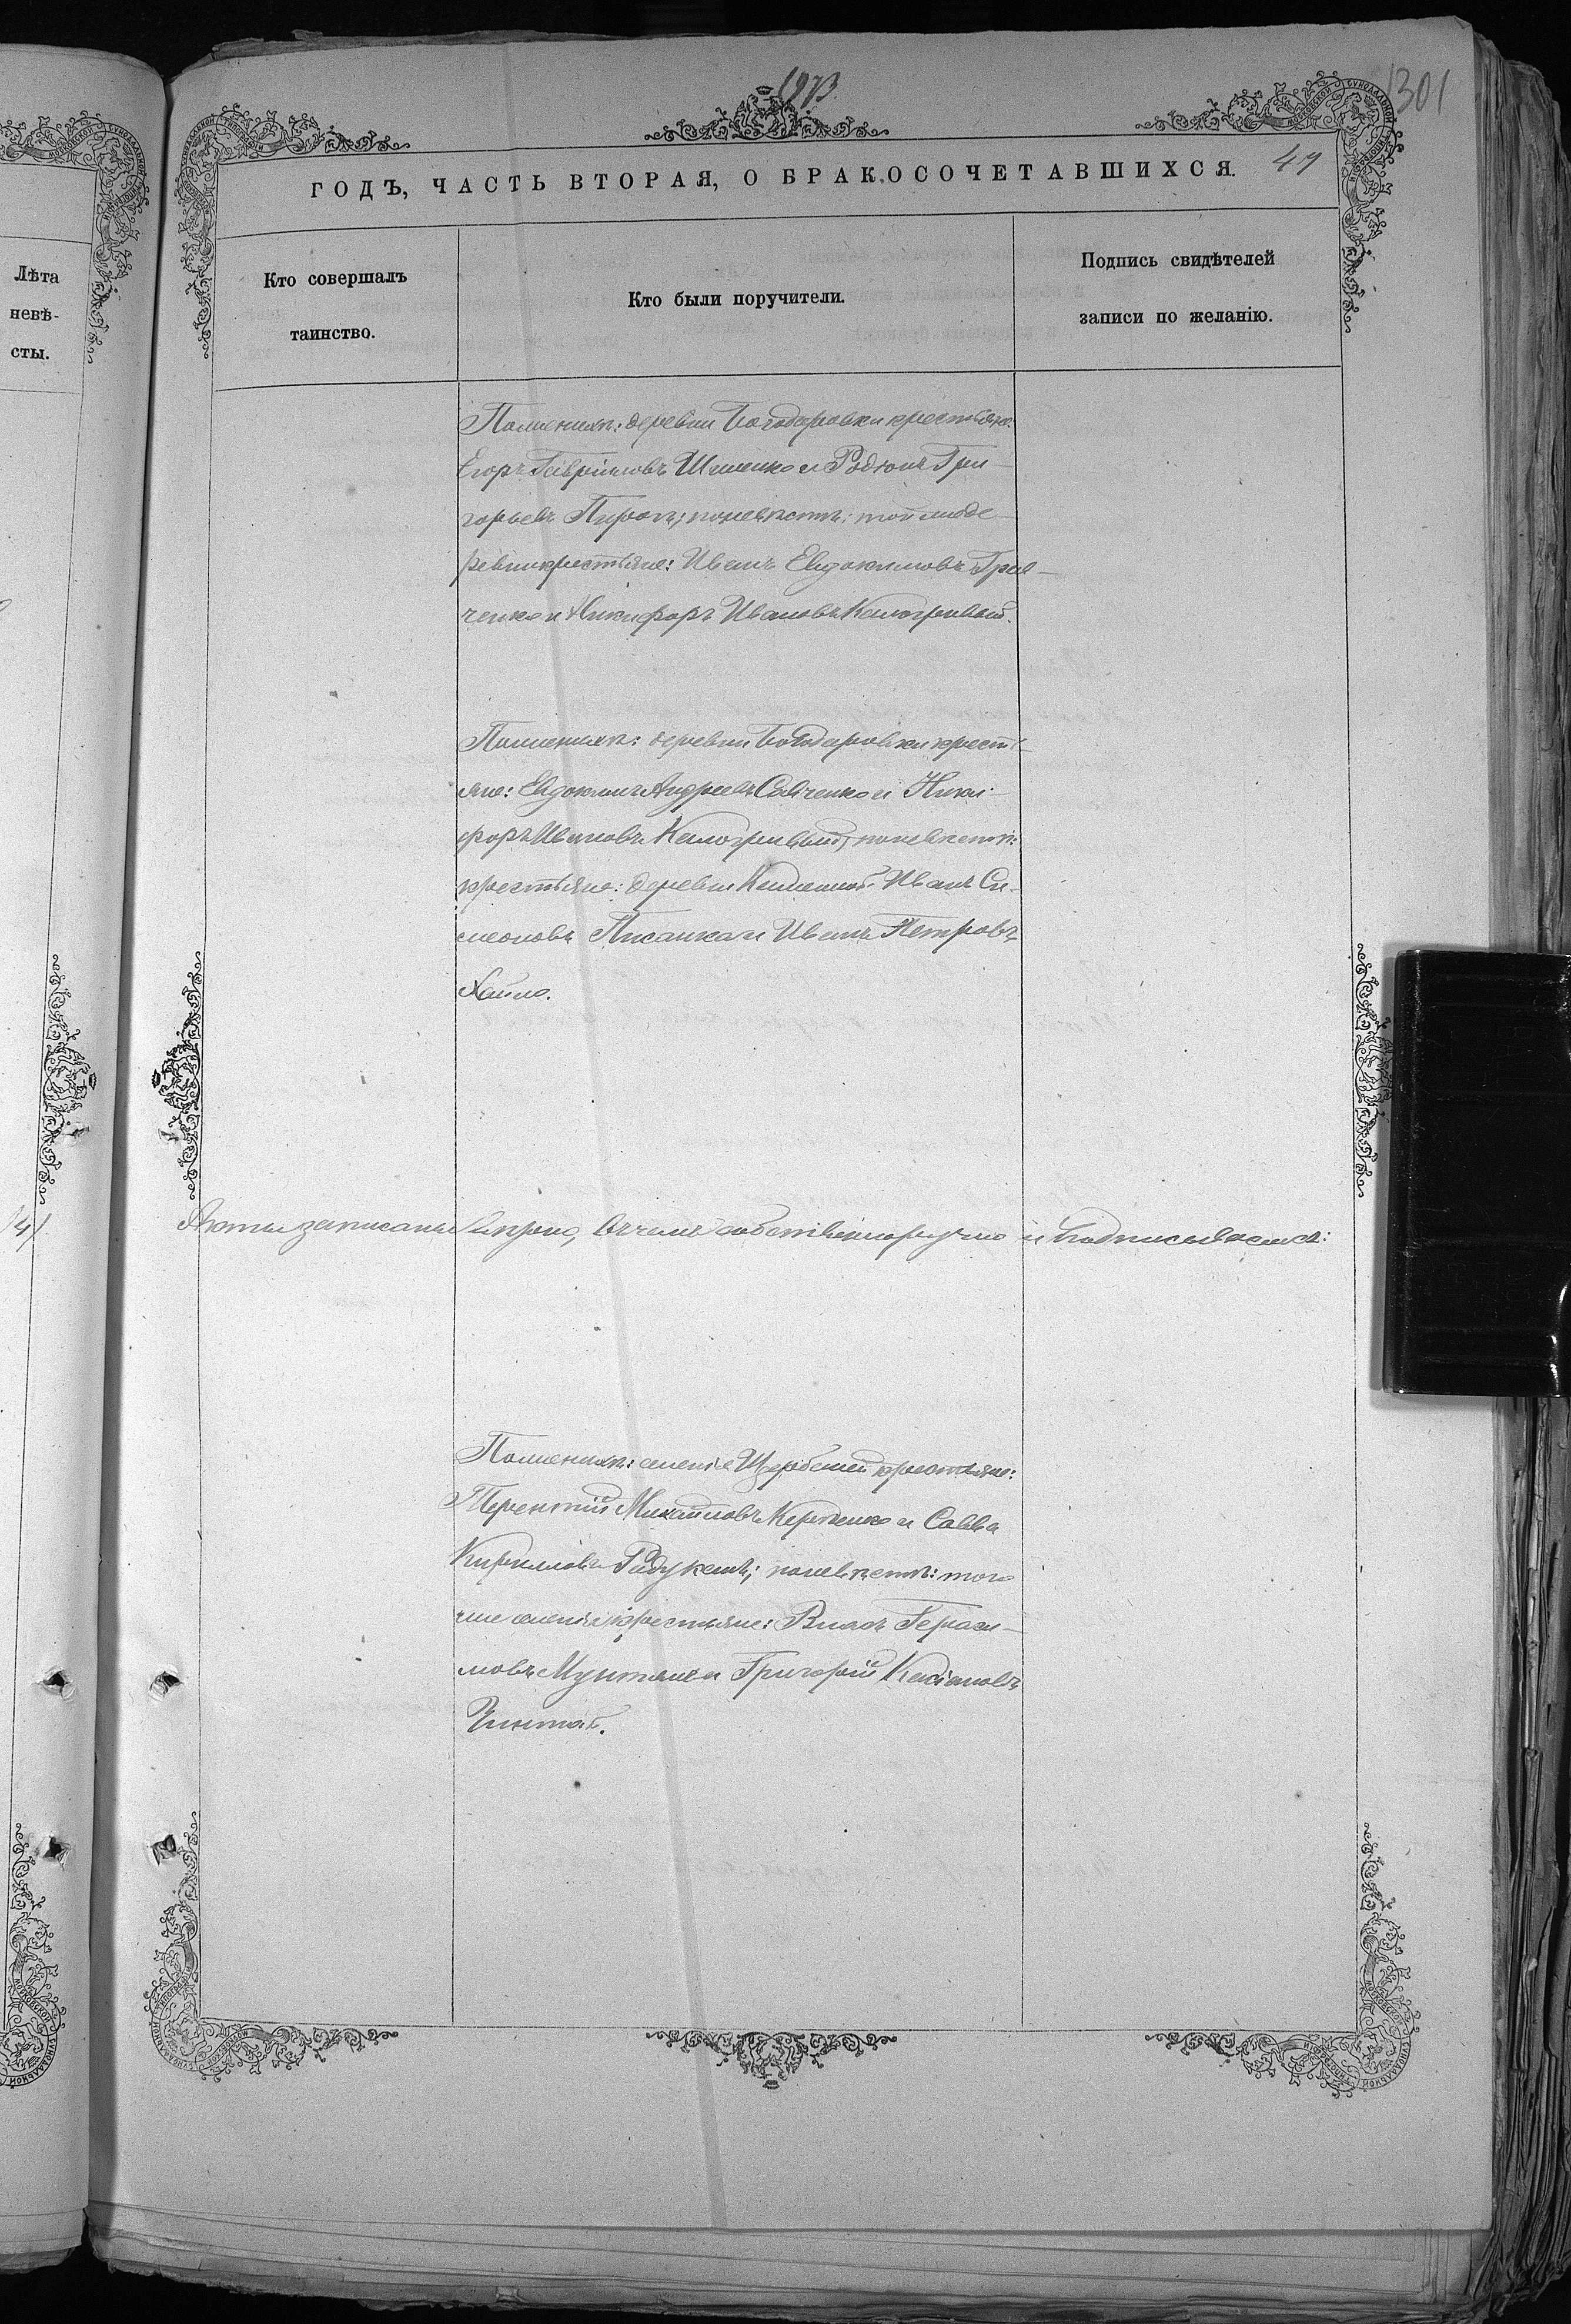 1873
301
ГОДЪ, ЧАСТЬ ВТОРАЯ, О БРАКОСОЧЕТАВШИХСЯ.
49
Лѣта
невѣ-
сты.
Кто совершалъ
таинство.
Кто были поручители.
Подпись свидѣтелей
записи по желанію.
По женихѣ: деревни Богодаровки крестьяне:
Егоръ Гавріиловъ и Родіонъ Гри-
горьевъ Пирогъ; по невѣстѣ: той же де-
ревни крестьяне: Иванъ Евдокимовъ Гре-
ченко и Никифоръ Ивановъ
По женихѣ: деревни Богодаровки кресть-
яне: Евдокимъ Андреевъ Савченко и Ники-
форъ Ивановъ по невѣстѣ:
крестьяне: деревни Иванъ Си-
меоновъ Писанка и Иванъ Петровъ
Хайло.
Акты записаны вѣрно, въ чемъ собственноручно и подписываемся:
По женихѣ: селенія крестьяне:
Терентій Михайловъ и Савва
Кирилловъ по невѣстѣ: того
же селенія крестьяне: Гераси-
мовъ Мунтянъ и Григорій Касіановъ